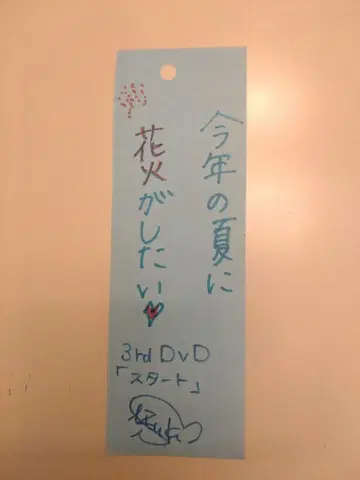 今年の夏に
花火がしたい
3rd DVD
「スタート」